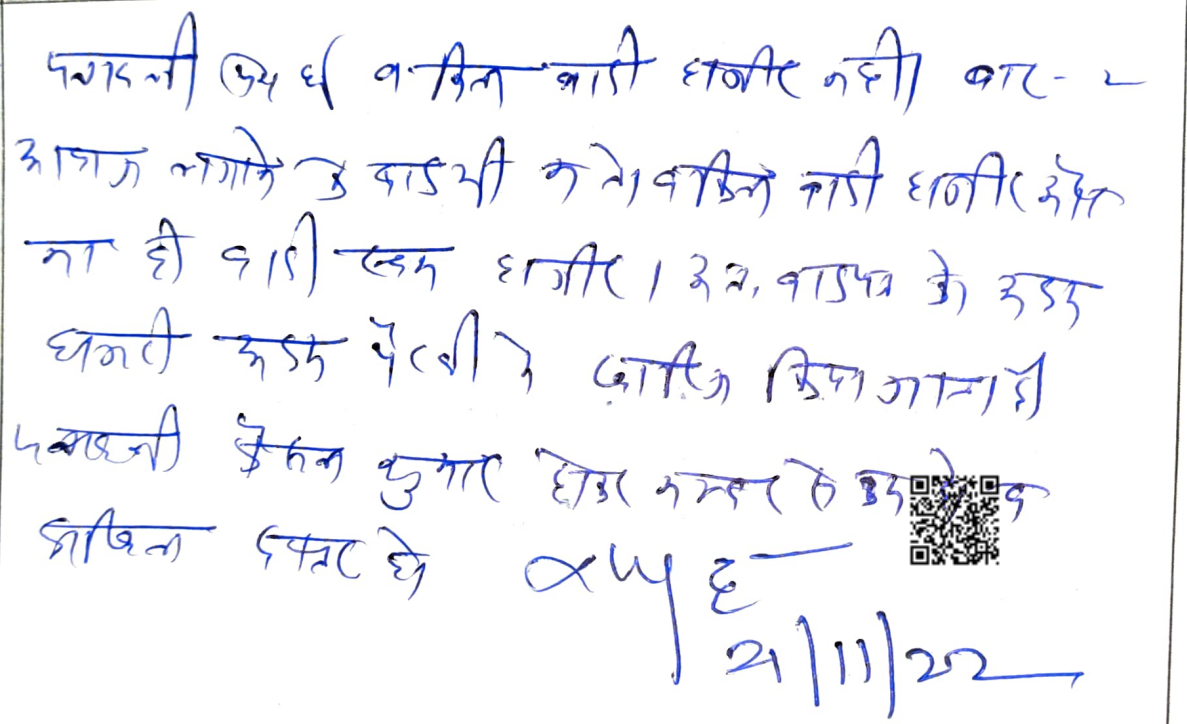 पत्रावली पेश हुई वकील वादी हाजीर नही। बार-2
आवाज लगाने के बाद भी न तो वकील वादी हाजीर
ना ही वादी स्वयं हाजीर। अतः वादपत्र को अदम
हाजरी अदम पैरवी मे खारिज किया जाता है।
पत्रावली फैसल शुमार होकर नम्बर से कम होकर
दाखिल दफ्तर हो
21/11/22